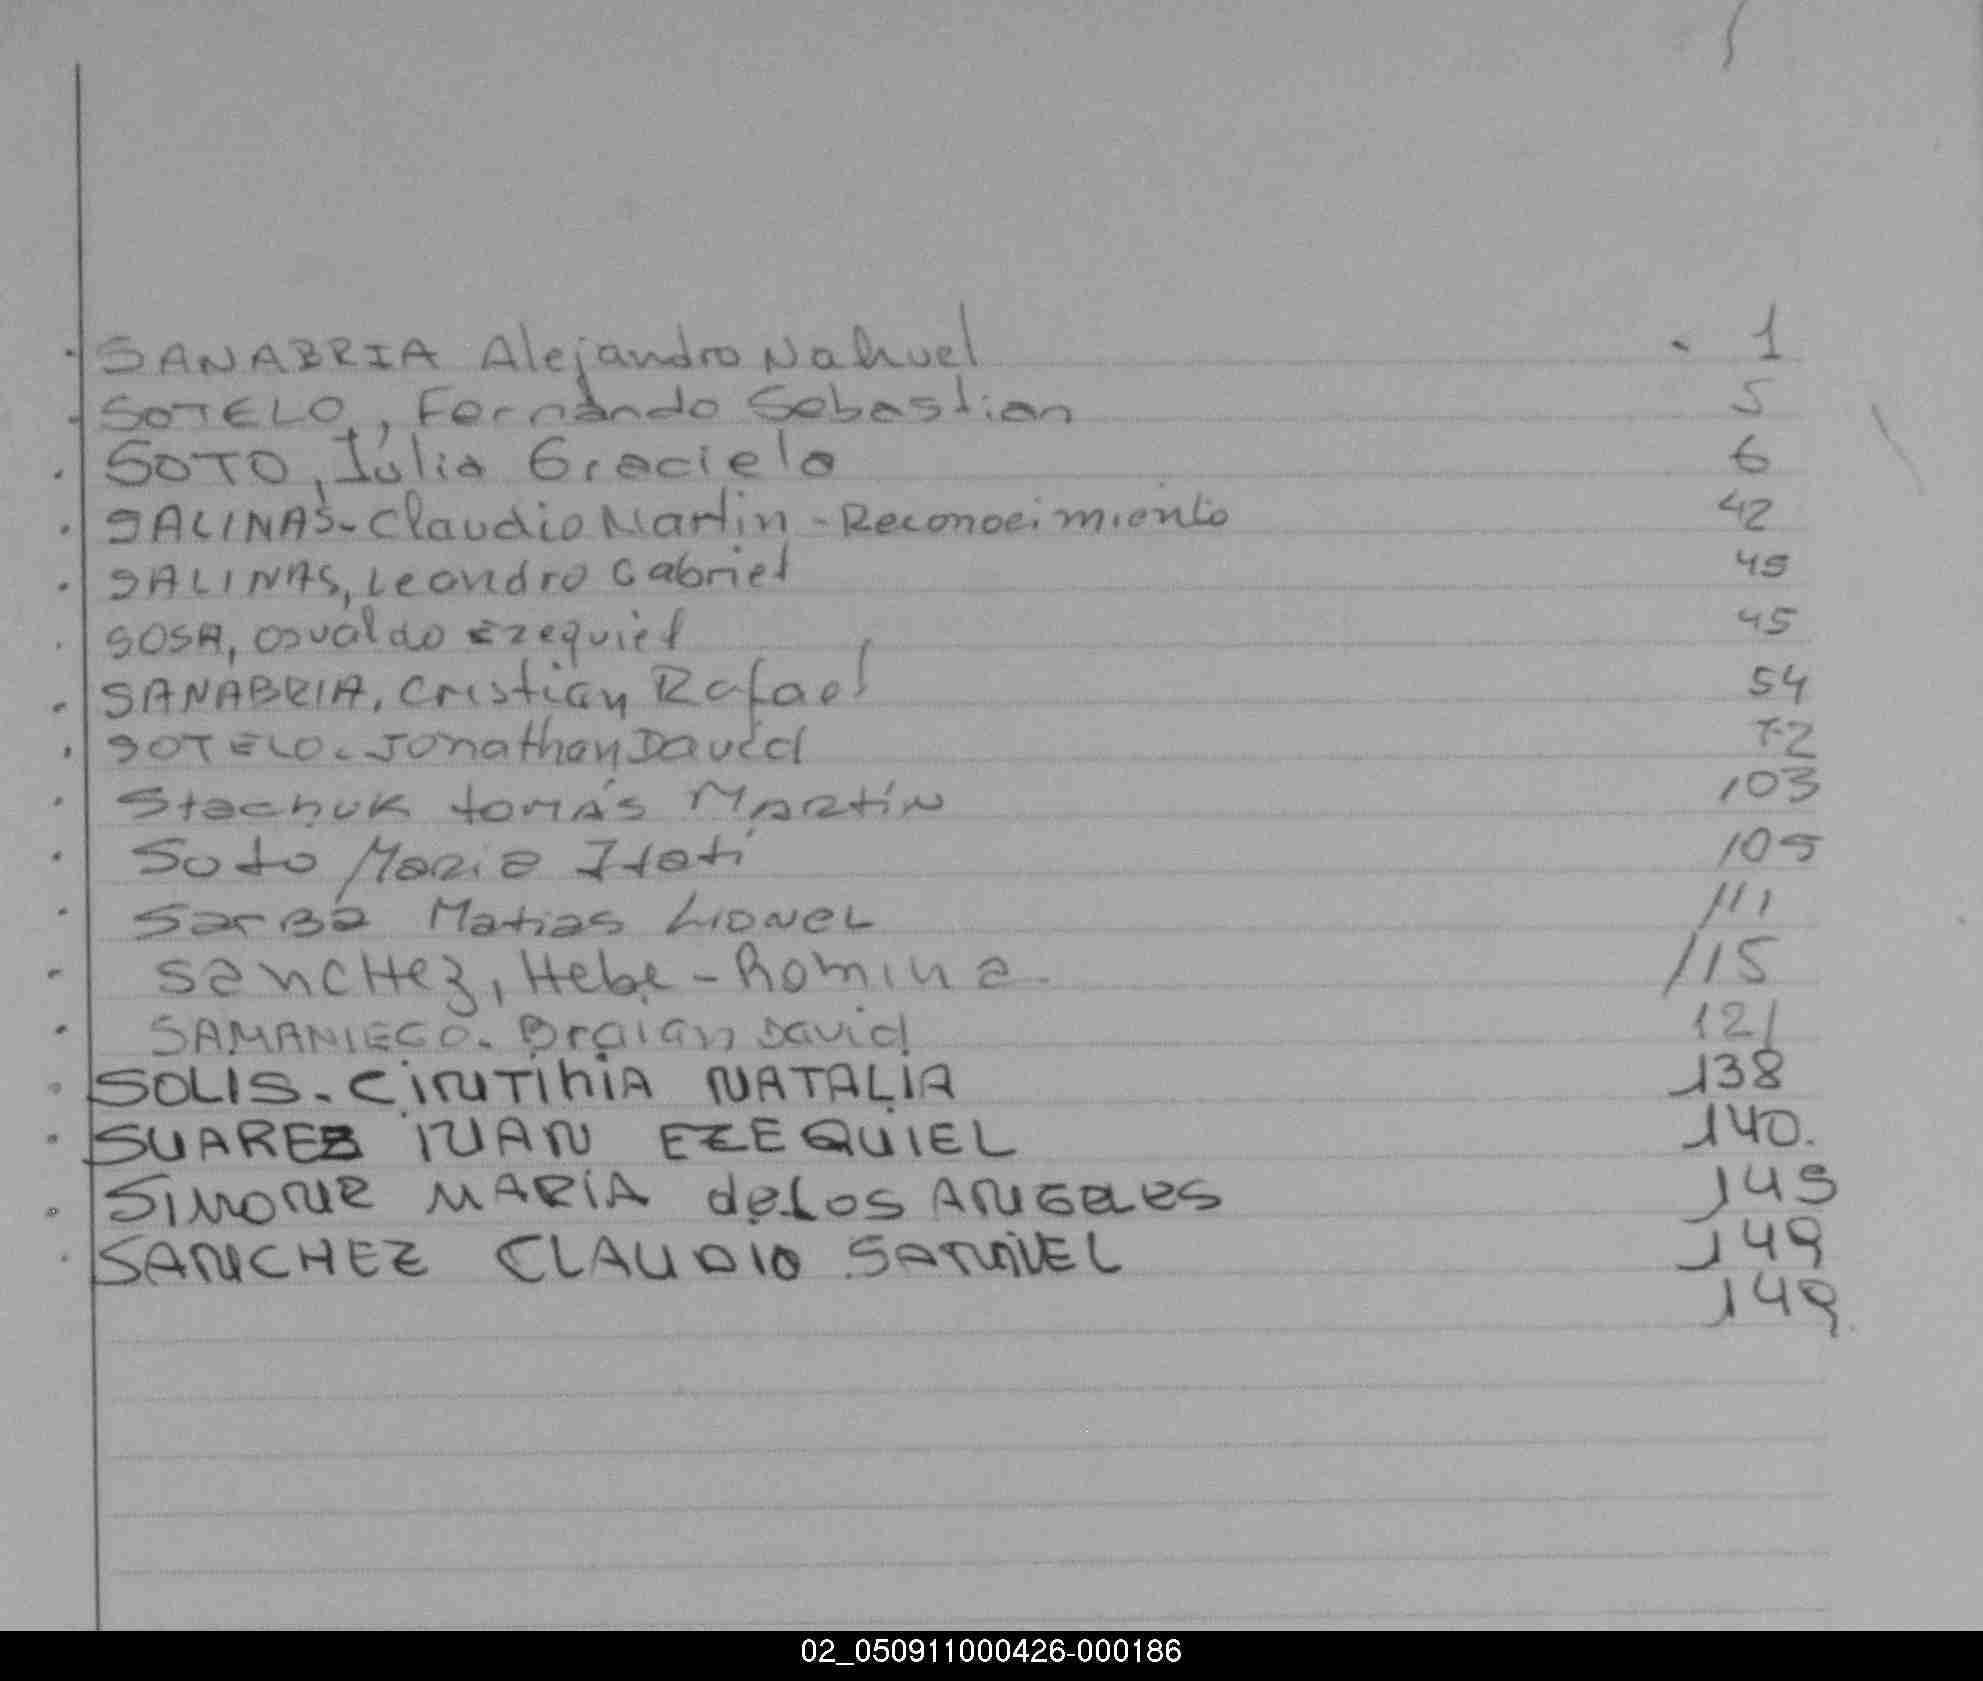 SANABRIA Alejandro Nahuel - 1
SOTELO, Fernando Sebastian 5
SOTO, Júlia Graciela 6
SALINAS-Claudio Martin - Reconocimiento 42
SALINAS, Leandro Gabriel 45
SOSA, Osvaldo Ezequiel 45
SANABRIA, Cristian Rafael 54
SOTELO. Jonathan David 72
Stachuk tomás Martín 103
Soto Maria Itatí 105
Sarba Matias Lionel 111
Sanchez, Hebe - Romina. 115
SAMANIEGO. Braian David 121
SOLIS. CINTIhIA NATALIA 138
SUAREZ IVAN EZEQUIEL 140.
SIMONE MARIA de LOS ANGELES 145
SANCHEZ CLAUDIO SAMUEL 149
149
02_050911000426-000186